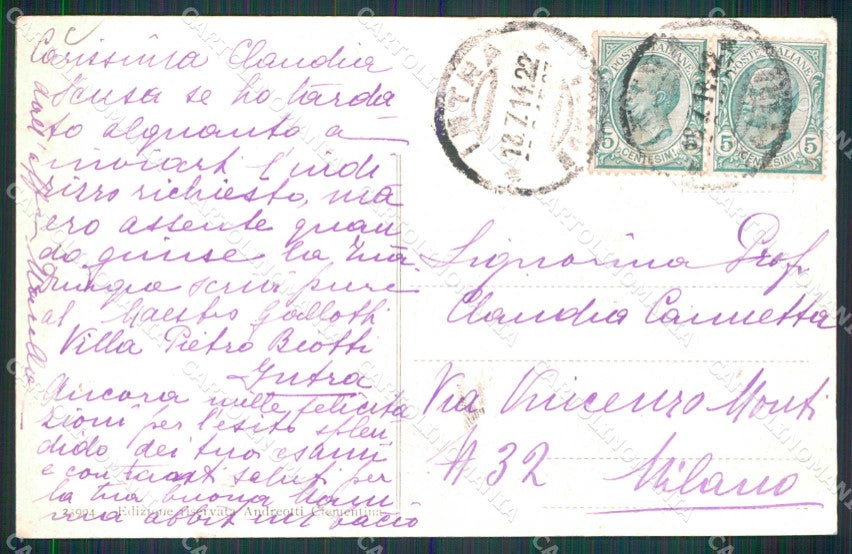 Carissima Claudia
Scusa se ho tarda
to alquanto a
inviarti l'indi
rizzo richiesto, ma
ero assente quan
do giunse la tua.
Dunque scrivi pure
al Maestro Gallotti
Villa Pietro Biotti
Intra
Ancora mille felicita
zioni per l'esito splen
dido dei tuoi esami
e con tanti saluti per
la tua buona Mam
ma abbiti un bacio
dall'aff.
INTRA
18.7.14.22
POSTE ITALIANE
5 CENTESIMI 5
POSTE ITALIANE
5 CENTESIMI 5
Signorina Prof.
Claudia Cannetta
Via Vincenzo Monti
N 32
Milano
34994 - Edizione riservata Andreotti Clementina
CARTOLINOMANIA